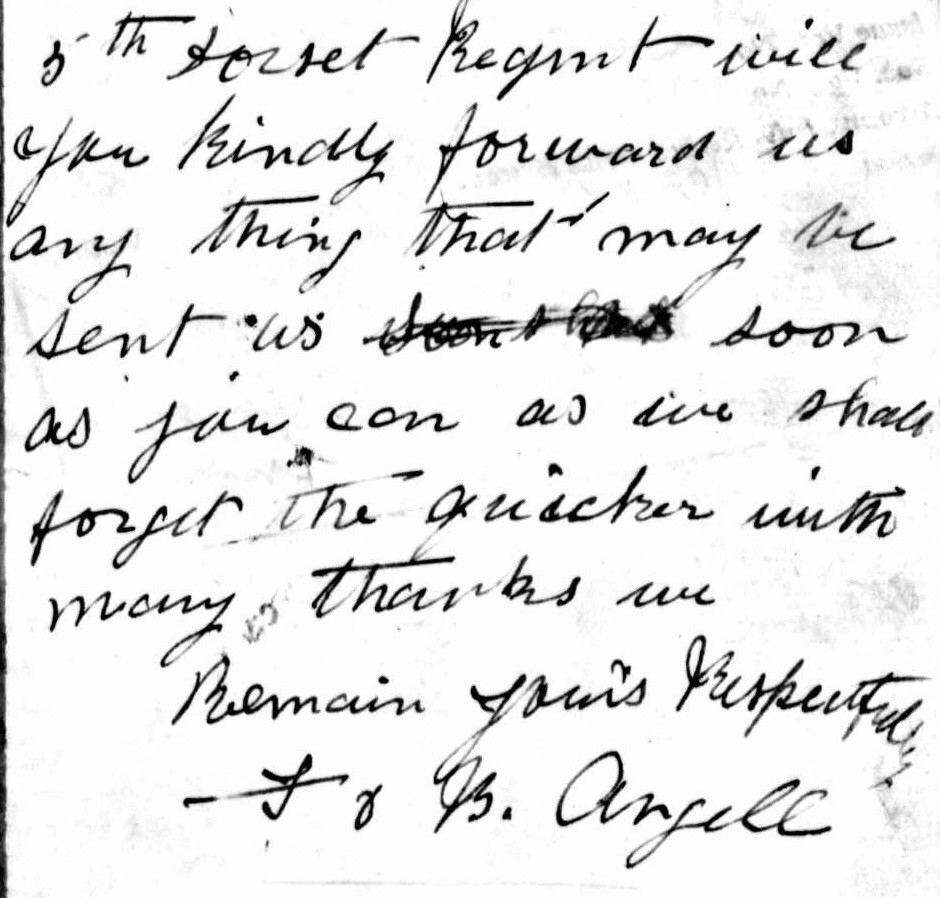 5th Dorset Regmt will
you kindly forward us
any thing that may be
sent us soon
as you can as we shall
forget the quicker with
many thanks we
Remain yours Respectfully
F & B. Angell